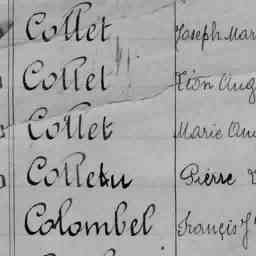 Collet Joseph Mar
Collet Léon Aug
Collet Marie
Colletu Pierre
Colombel François J